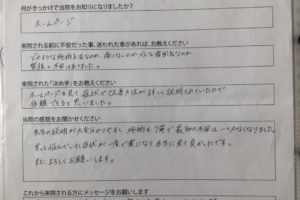 何がきっかけで当院をお知りになりましたか？
ホームページ
来院される前に不安だった事、迷われた事があれば、お教えください
どのような施術方法なのか、痛くないか、どんな雰囲気なのか
緊張と不安はありました。
来院された「決め手」をお教えください
ホームページを見て症状や改善方法が詳しく説明されていたので
信頼できると思いました。
当院の感想をお聞かせください
先生の説明が大変分かりやすく、施術も丁寧で最初の不安は一切なくなりました。
ずっと悩んでいた症状が一度で楽になり本当に来て良かったです。
またよろしくお願いします。
これから来院される方にメッセージをお願いします